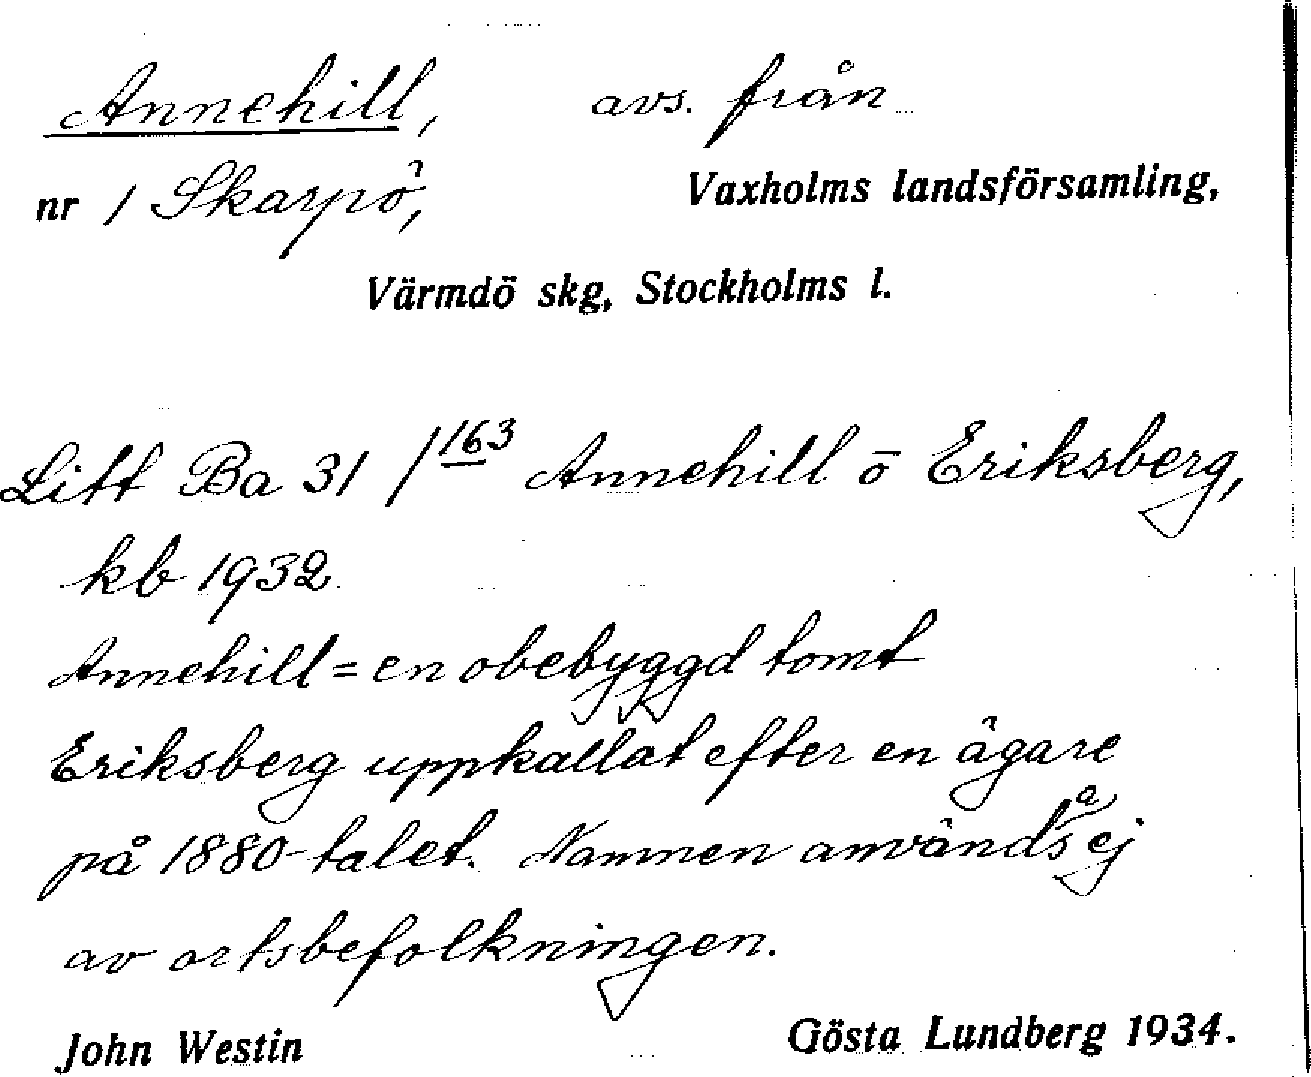 Annehill, avs. från
nr 1 Skarpö, Vaxholms landsförsamling,
Värmdö skg, Stockholms l.
Litt Ba 31 /163 Annehill o Eriksberg,
kb 1932.
Annehill = en obebyggd tomt
Eriksberg uppkallat efter en ägare
på 1880-talet. Namnen användas ej
av ortsbefolkningen.
John Westin Gösta Lundberg 1934.